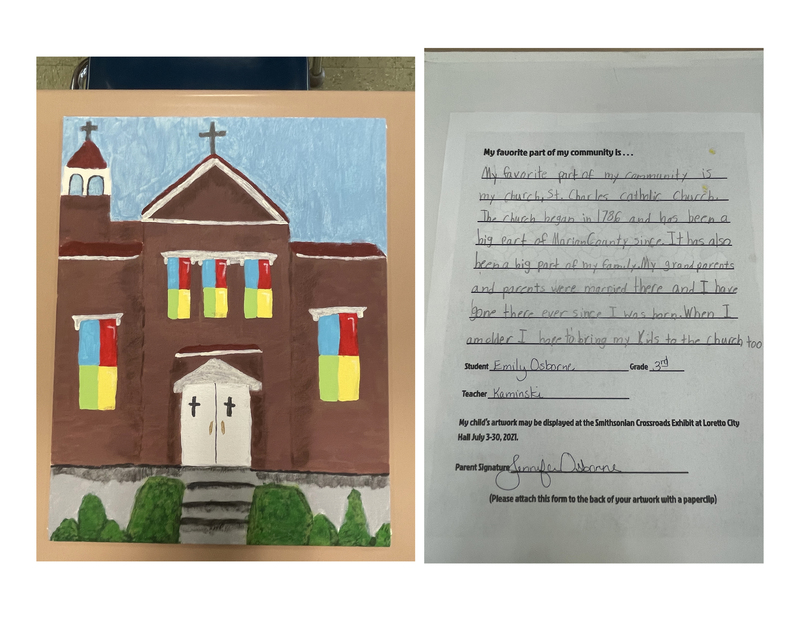 My favorite part of my community is . . .
My favorite part of my community is
my church, St. Charles catholic Church.
The church began in 1786 and has been a
big part of Marion County since. It has also
been a big part of my family. My grandparents
and parents were married there and I have
gone there ever since I was born. When I
am older I hope to bring my Kids to the church too
Student Emily Osborne Grade 3rd
Teacher Kaminski
My child's artwork may be displayed at the Smithsonian Crossroads Exhibit at Loretto City
Hall July 3-30, 2021.
Parent Signature Jennifer Osborne
(Please attach this form to the back of your artwork with a paperclip)